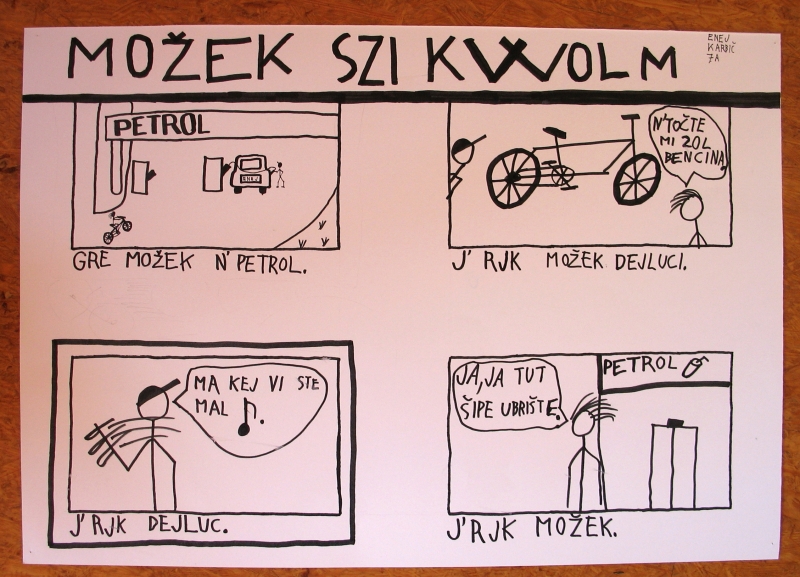 MOŽEK SZI KWOLM
ENEJ
KARDIČ
7A
PETROL
ENEJ
GRE MOŽEK N' PETROL.
N'TOČTE
MI 20L
BENCINA
J' RJK MOŽEK DEJLUCI.
MA KEJ VI STE
MAL ♪.
J'RJK DEJLUC.
JA, JA TUT
ŠIPE UBRIŠTE.
PETROL
J'RJK MOŽEK.